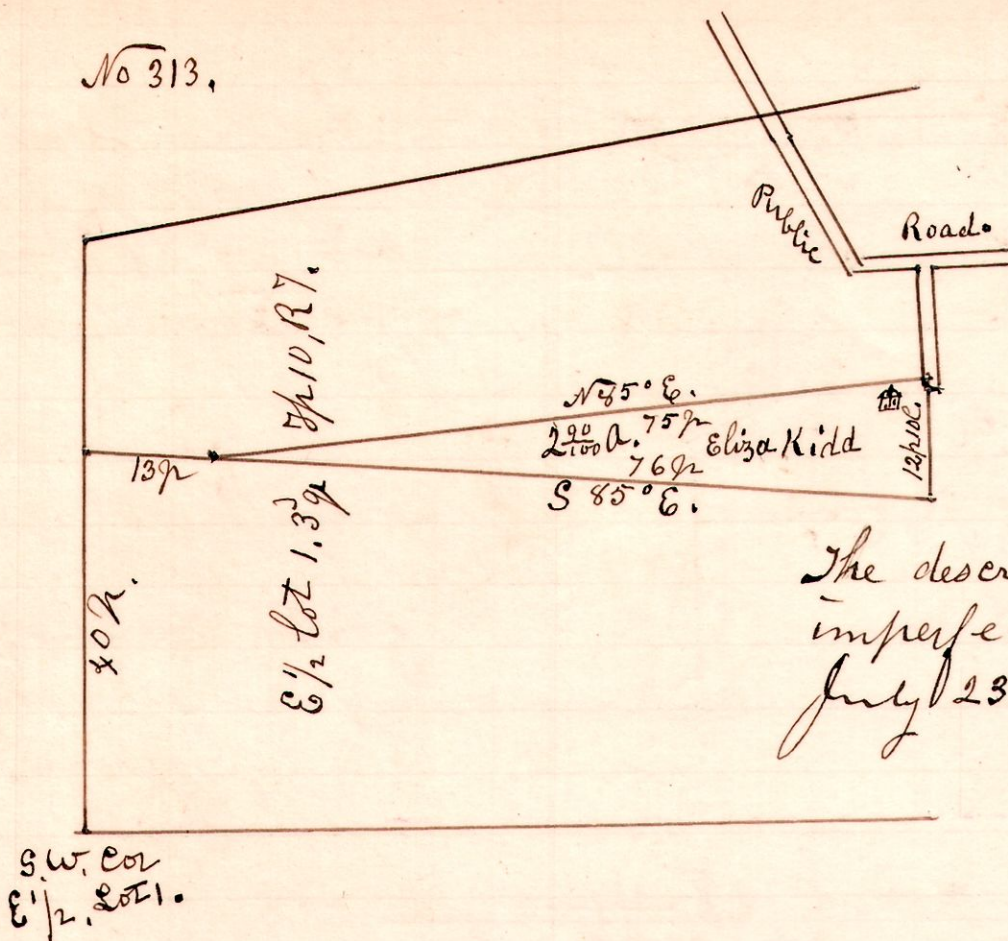 No 313.
Public
Road.
Tp 10, R 7.
N 85° E.
2 90/100 A. 75p
Eliza Kidd
76p
S 85° E.
12p 10l.
13p
E 1/2 Lot 1. 3 q
40p.
The descr
imperfe
July 23
S.W. Cor
E 1/2. Lot 1.